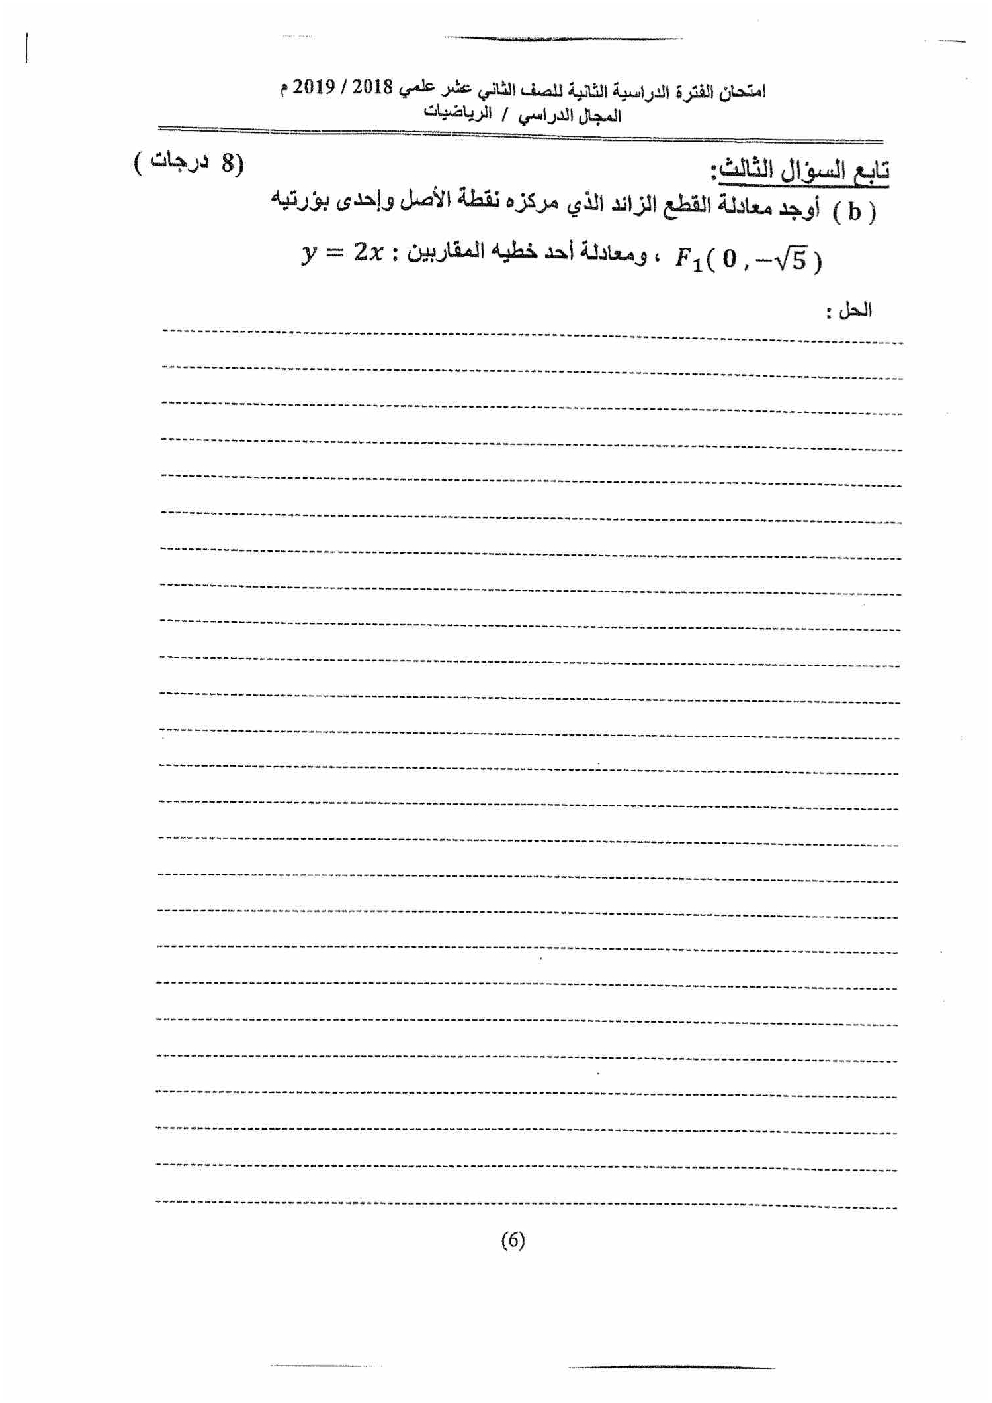 امتحان الفترة الدراسية الثانية للصف الثاني عشر علمي 2018 / 2019 م
المجال الدراسي / الرياضيات
تابع السؤال الثالث: (8 درجات )
( b ) أوجد معادلة القطع الزائد الذي مركزه نقطة الأصل وإحدى بؤرتيه
F₁( 0 , −√5 ) ، ومعادلة أحد خطيه المقاربين : y = 2x
الحل :
(6)